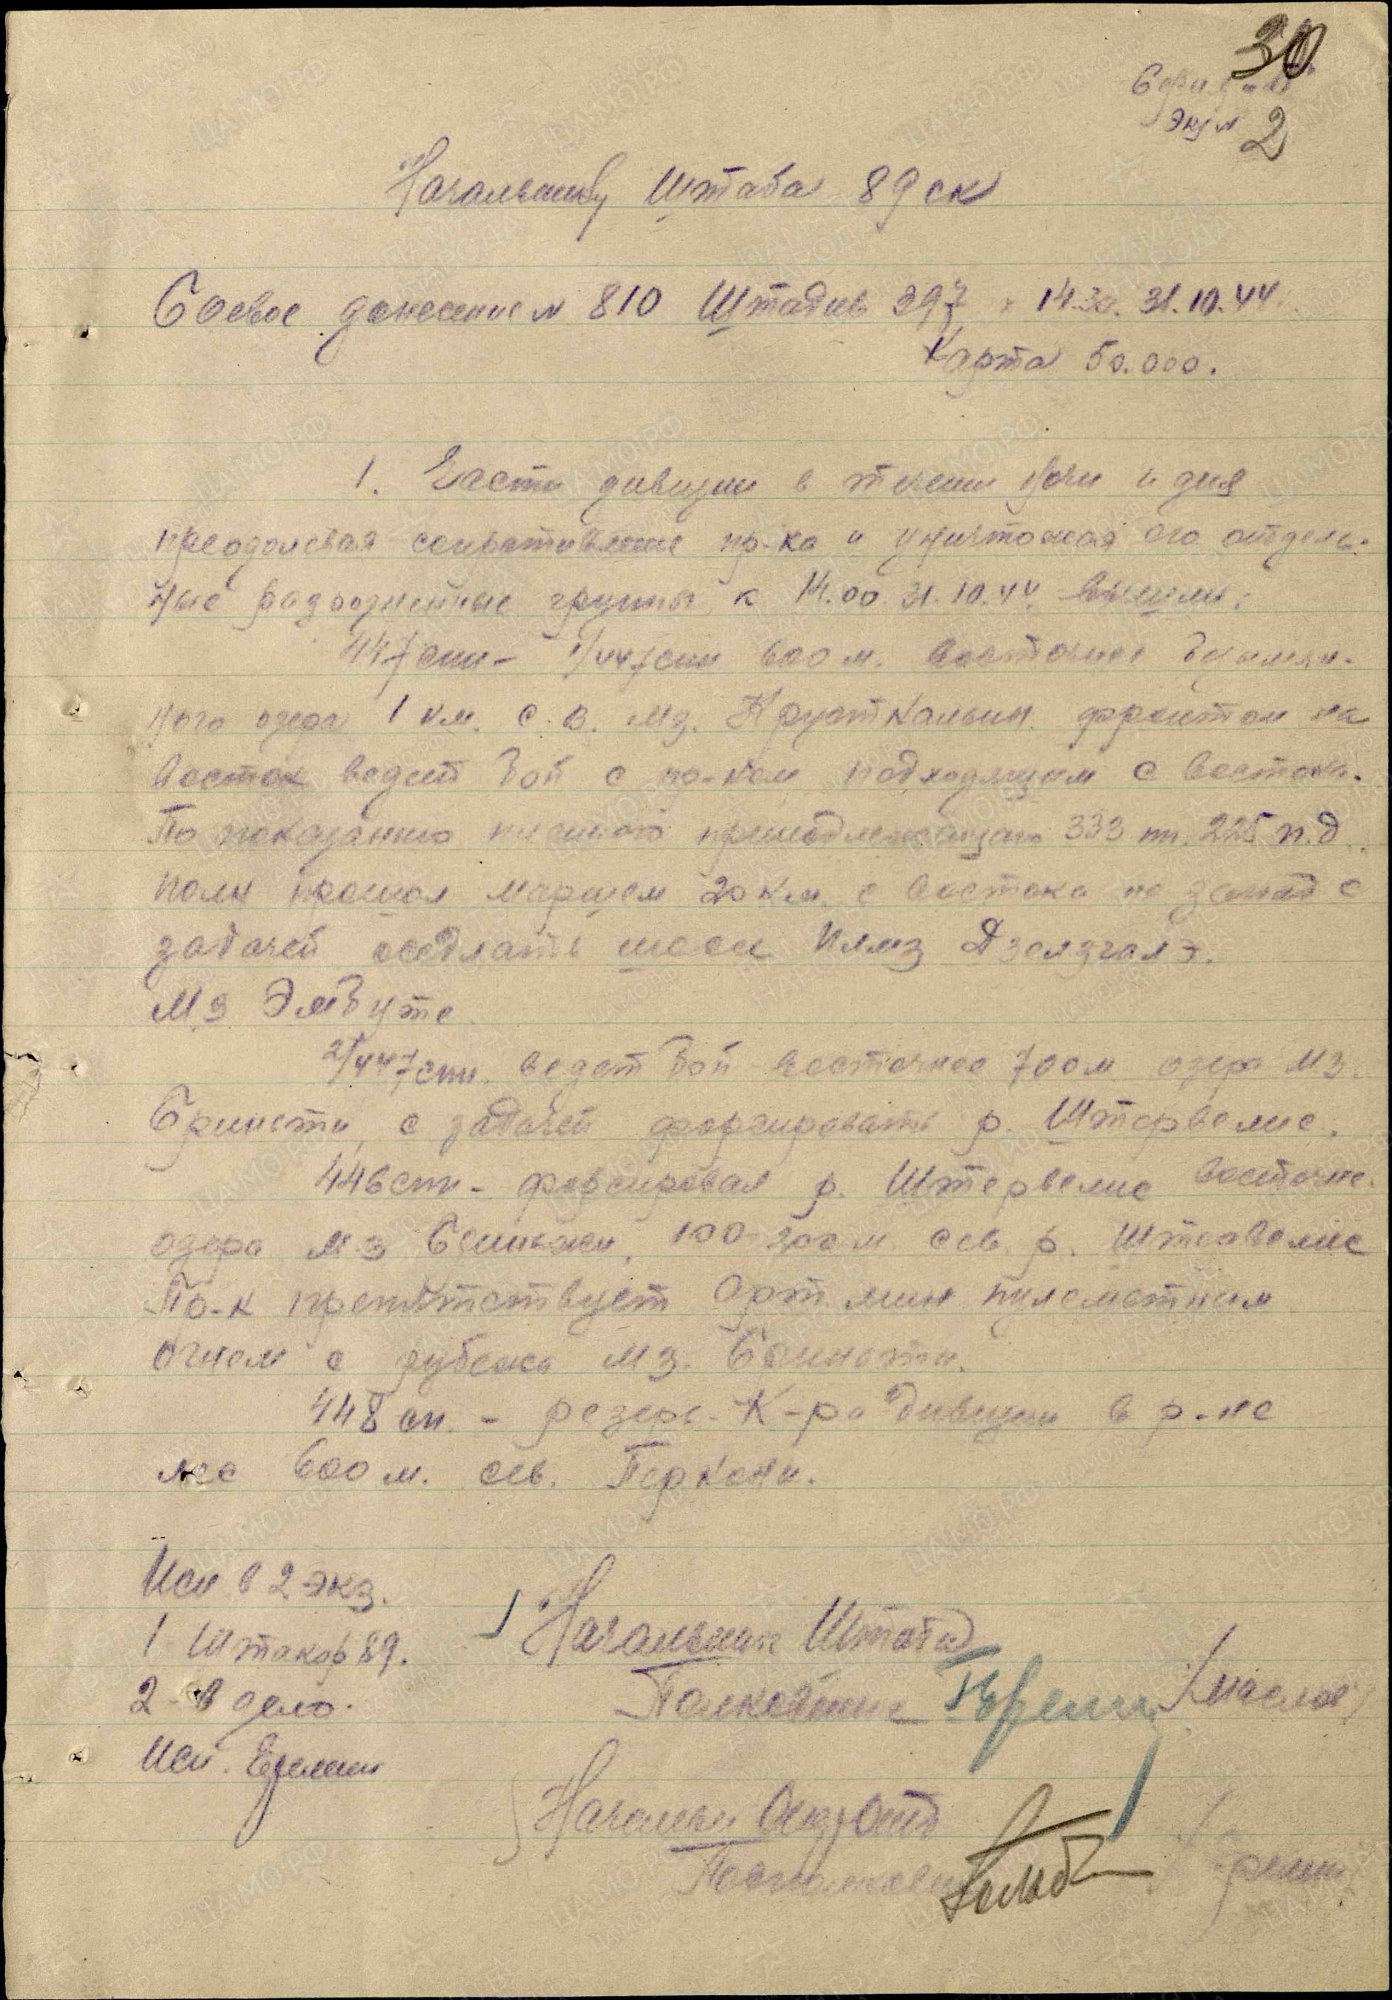 30
Экз №
2
Начальнику Штаба 89 ск
Боевое донесение № 810 Штадив 397 14.30. 31.10.44.
Карта 50.000.
1. Части дивизии в течении ночи и дня
преодолевая сопротивление пр-ка и уничтожая его отдель-
ные разрозненные группы к 14.00 31.10.44. вышли:
447 сп - 1/447 сп 600 м. восточнее
ного озера 1 км. с.в. мз. Круткальын. фронтом на
восток ведет бой с пр-ком подходящим с востока.
По показанию пленного принадлежащего 333 пп. 225 п.д.
полк прошел маршем 20 км. с востока на запад с
задачей оседлать шоссе Мз Дзелзгалэ.
Мз Эмбуте
2/447 сп. ведет бой восточнее 700 м озера Мз.
с задачей форсировать р. Штервелис.
446 сп - форсировал р. Штервелис восточне.
озера Мз 100-200 м сев. р. Штервелис
Пр-к препятствует Арт. мин пулеметным
огнем с рубежа Мз.
448 сп. - резерв К-ра дивизии в р-не
лес 600 м. сев. Перкони.
Исп в 2 экз.
1 Штакор 89.
2 - В дело.
Исп. Еремин
Начальник Штаба
Полковник /Маслов/
Начальн Опер Отд
Подполковник